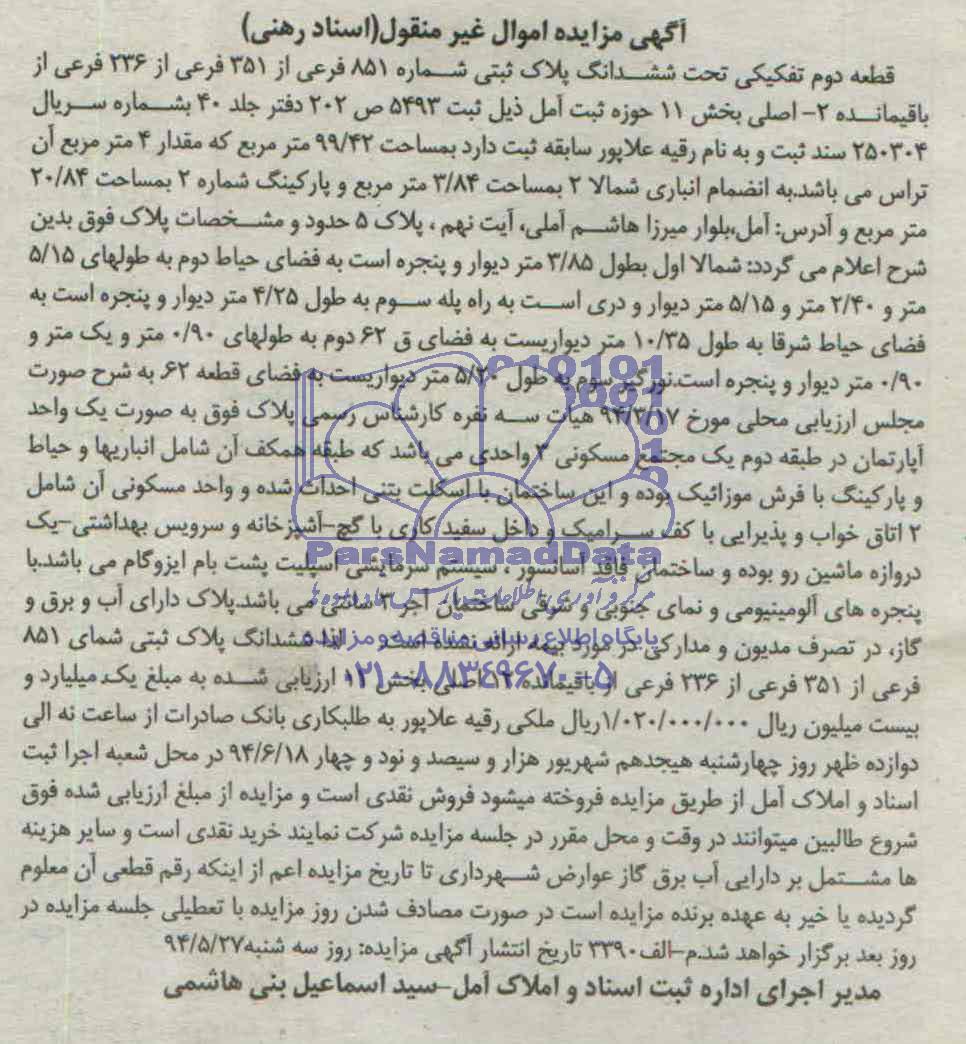 آگهی مزایده اموال غیر منقول(اسناد رهنی)
قطعه دوم تفکیکی تحت ششدانگ پلاک ثبتی شماره ۸۵۱ فرعی از ۳۵۱ فرعی از ۲۳۶ فرعی از
باقیمانده ۲- اصلی بخش ۱۱ حوزه ثبت آمل ذیل ثبت ۵۴۹۳ ص ۲۰۲ دفتر جلد ۴۰ بشماره سریال
۲۵۰۳۰۴ سند ثبت و به نام رقیه علاپور سابقه ثبت دارد بمساحت ۹۹/۴۲ متر مربع که مقدار ۴ متر مربع آن
تراس می باشد.به انضمام انباری شمالا ۲ بمساحت ۳/۸۴ متر مربع و پارکینگ شماره ۲ بمساحت ۲۰/۸۴
متر مربع و آدرس: آمل،بلوار میرزا هاشم آملی، آیت نهم ، پلاک ۵ حدود و مشخصات پلاک فوق بدین
شرح اعلام می گردد: شمالا اول بطول ۳/۸۵ متر دیوار و پنجره است به فضای حیاط دوم به طولهای ۵/۱۵
متر و ۲/۴۰ متر و ۵/۱۵ متر دیوار و دری است به راه پله سوم به طول ۴/۲۵ متر دیوار و پنجره است به
فضای حیاط شرقا به طول ۱۰/۳۵ متر دیواریست به فضای ق ۶۲ دوم به طولهای ۰/۹۰ متر و یک متر و
۰/۹۰ متر دیوار و پنجره است.نورگیر سوم به طول ۵/۲۰ متر دیواریست به فضای قطعه ۶۲. به شرح صورت
مجلس ارزیابی محلی مورخ ۹۴/۳/۱۷ هیات سه نفره کارشناس رسمی پلاک فوق به صورت یک واحد
آپارتمان در طبقه دوم یک مجتمع مسکونی ۳ واحدی می باشد که طبقه همکف آن شامل انباریها و حیاط
و پارکینگ با فرش موزائیک بوده و این ساختمان با اسکلت بتنی احداث شده و واحد مسکونی آن شامل
۲ اتاق خواب و پذیرایی با کف سرامیک و داخل سفید کاری با گچ-آشپزخانه و سرویس بهداشتی-یک
دروازه ماشین رو بوده و ساختمان فاقد آسانسور ، سیستم سرمایشی اسپلیت پشت بام ایزوگام می باشد.با
پنجره های آلومینیومی و نمای جنوبی و شرقی ساختمان آجر ۳ سانتی می باشد.پلاک دارای آب و برق و
گاز، در تصرف مدیون و مدارکی در مورد بیمه ارائه نشده است. لذا ششدانگ پلاک ثبتی شمای ۸۵۱
فرعی از ۳۵۱ فرعی از ۲۳۶ فرعی از باقیمانده ۲- اصلی بخش ۱۱ ارزیابی شده به مبلغ یک میلیارد و
بیست میلیون ریال ۱/۰۲۰/۰۰۰/۰۰۰ریال ملکی رقیه علاپور به طلبکاری بانک صادرات از ساعت نه الی
دوازده ظهر روز چهارشنبه هیجدهم شهریور هزار و سیصد و نود و چهار ۹۴/۶/۱۸ در محل شعبه اجرا ثبت
اسناد و املاک آمل از طریق مزایده فروخته میشود فروش نقدی است و مزایده از مبلغ ارزیابی شده فوق
شروع طالبین میتوانند در وقت و محل مقرر در جلسه مزایده شرکت نمایند خرید نقدی است و سایر هزینه
ها مشتمل بر دارایی آب برق گاز عوارض شهرداری تا تاریخ مزایده اعم از اینکه رقم قطعی آن معلوم
گردیده یا خیر به عهده برنده مزایده است در صورت مصادف شدن روز مزایده با تعطیلی جلسه مزایده در
روز بعد برگزار خواهد شد.م-الف۳۳۹۰ تاریخ انتشار آگهی مزایده: روز سه شنبه۹۴/۵/۲۷
مدیر اجرای اداره ثبت اسناد و املاک آمل-سید اسماعیل بنی هاشمی
ParsNamadData
پایگاه اطلاع رسانی مناقصه و مزایده
۰۲۱-۸۸۳۴۹۶۷۰-۵